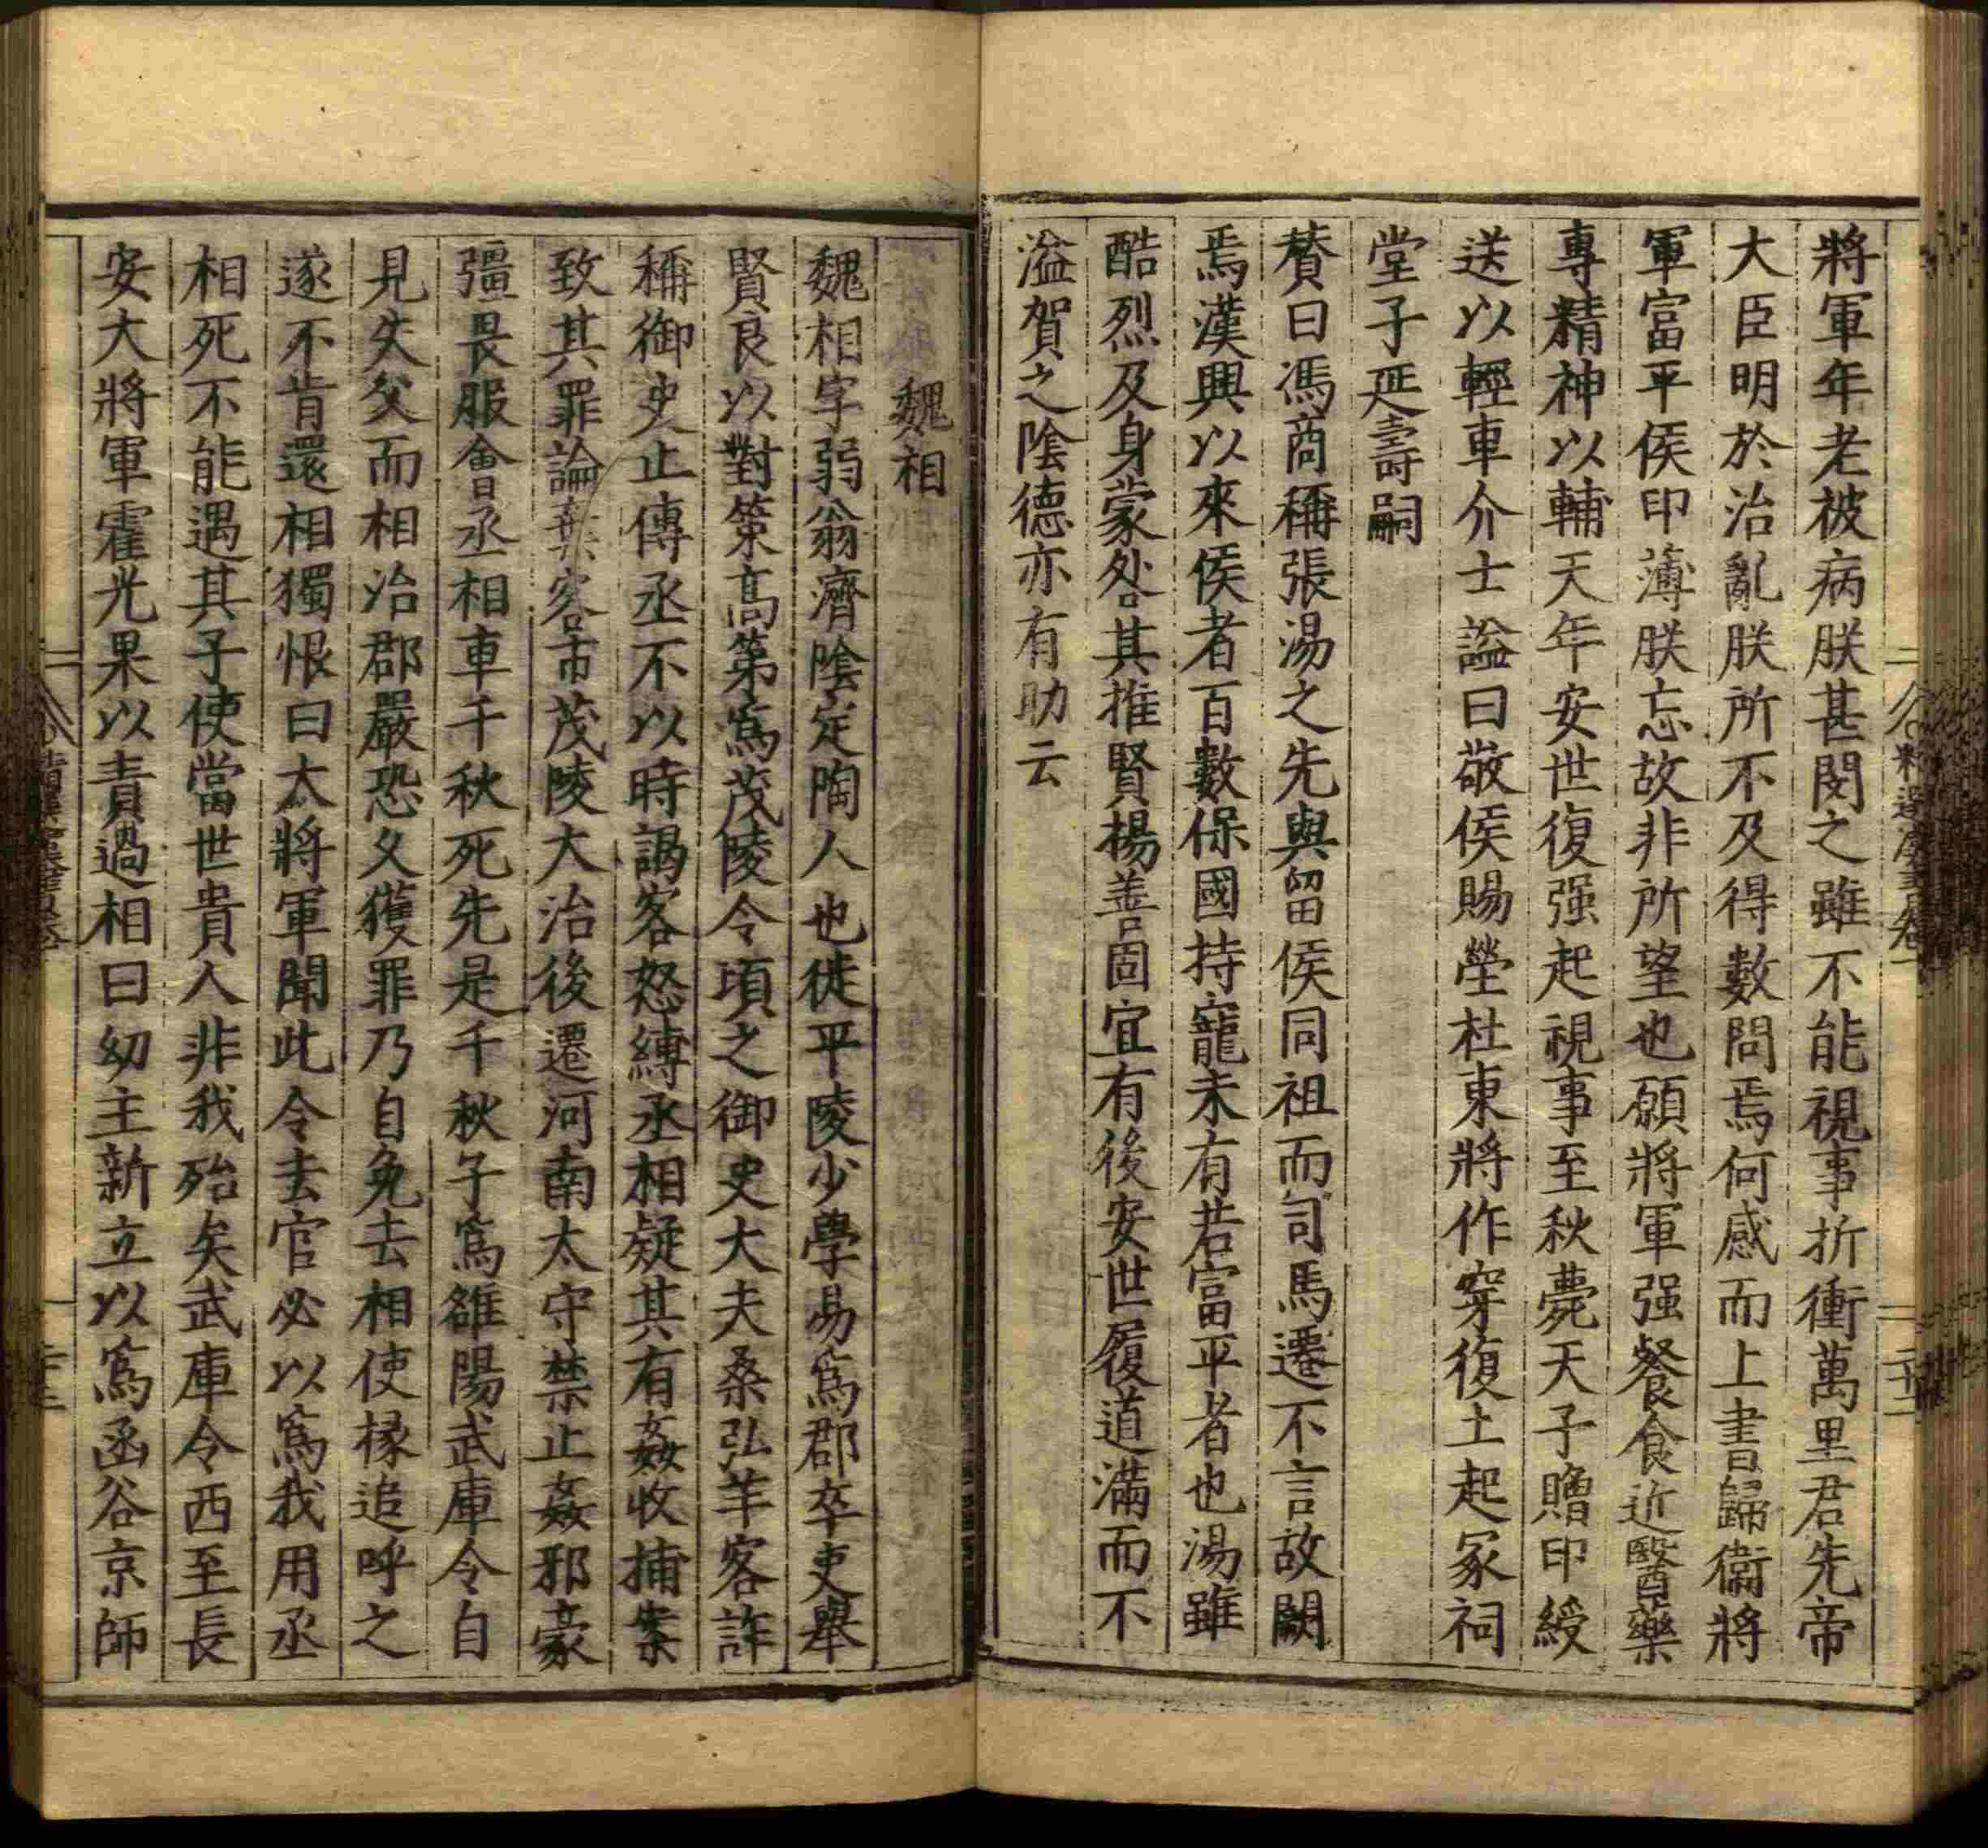 將軍年老被病朕甚閔之雖不能視事折衝萬里君先帝
大臣明於治亂朕所不及得數問焉何感而上書歸衛將
軍富平侯印薄朕忘故非所望也願將軍强餐食近醫藥
專精神以輔天年安世復强起視事至秋薨天子贈印綬
送以輕車介士謚曰敬侯賜塋杜東將作穿復土起冢祠
堂子延壽嗣
賛曰馮商稱張湯之先與留侯同祖而司馬遷不言故闕
焉漢興以來侯者百數保國持寵未有若富平者也湯雖
酷烈及身蒙咎其推賢楊善固宜有後安世履道滿而不
溢賀之陰德亦有助云
魏相
魏相字弱翁濟陰定陶人也徙平陵少學易爲郡卒吏舉
賢良以對策高第爲茂陵令頃之御史大夫桑弘羊客詐
稱御史止傳丞不以時謁客怒縛丞相疑其有姦收捕案
致其罪論棄客市茂陵大治後遷河南太守禁止姦邪豪
彊畏服會丞相車千秋死先是千秋子爲雒陽武庫令自
見失父而相治郡嚴恐久獲罪乃自免去相使掾追呼之
遂不肯還相獨恨曰大將軍聞此令去官必以爲我用丞
相死不能遇其子使當世貴人非我殆矣武庫令西至長
安大將軍霍光果以責過相曰幼主新立以爲函谷京師